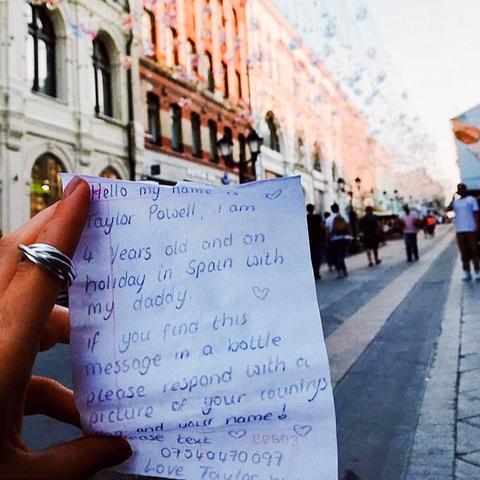 Hello my name is
Taylor Powell, i am
4 years old and on
holiday in Spain with
my daddy.
if you find this
message in a bottle
please respond with a
picture of your countrys
and your name!
please text
07540470697
Love Taylor